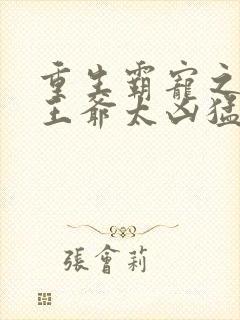 重生霸寵之
王爺太凶猛
張會莉